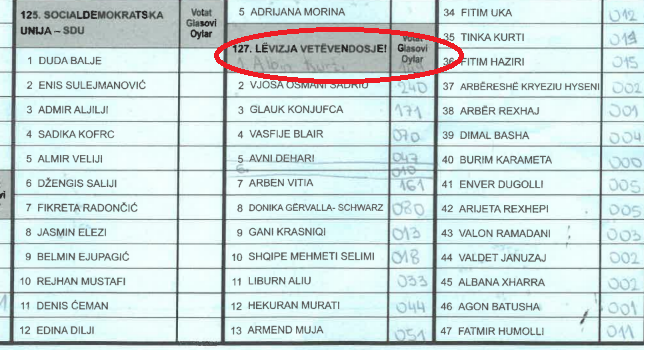 125. SOCIALDEMOKRATSKA
UNIJA – SDU
Votat
Glasovi
Oylar
1 DUDA BALJE
2 ENIS SULEJMANOVIĆ
3 ADMIR ALJILJI
4 SADIKA KOFRC
5 ALMIR VELIJI
6 DŽENGIS SALIJI
7 FIKRETA RADONČIĆ
8 JASMIN ELEZI
9 BELMIN EJUPAGIĆ
10 REJHAN MUSTAFI
11 DENIS ĆEMAN
12 EDINA DILJI
5 ADRIJANA MORINA
127. LËVIZJA VETËVENDOSJE!
Votat
Glasovi
Oylar
1 Albin
2 VJOSA OSMANI SADRIU 240
3 GLAUK KONJUFCA 171
4 VASFIJE BLAIR 070
5 AVNI DEHARI 047
6. 010
7 ARBEN VITIA 161
8 DONIKA GËRVALLA- SCHWARZ 080
9 GANI KRASNIQI 013
10 SHQIPE MEHMETI SELIMI 018
11 LIBURN ALIU 033
12 HEKURAN MURATI 044
13 ARMEND MUJA 051
34 FITIM UKA 012
35 TINKA KURTI
36 FITIM HAZIRI 015
37 ARBËRESHË KRYEZIU HYSENI 002
38 ARBËR REXHAJ 001
39 DIMAL BASHA 004
40 BURIM KARAMETA 000
41 ENVER DUGOLLI 005
42 ARIJETA REXHEPI 005
43 VALON RAMADANI 003
44 VALDET JANUZAJ 002
45 ALBANA XHARRA 002
46 AGON BATUSHA 001
47 FATMIR HUMOLLI 011